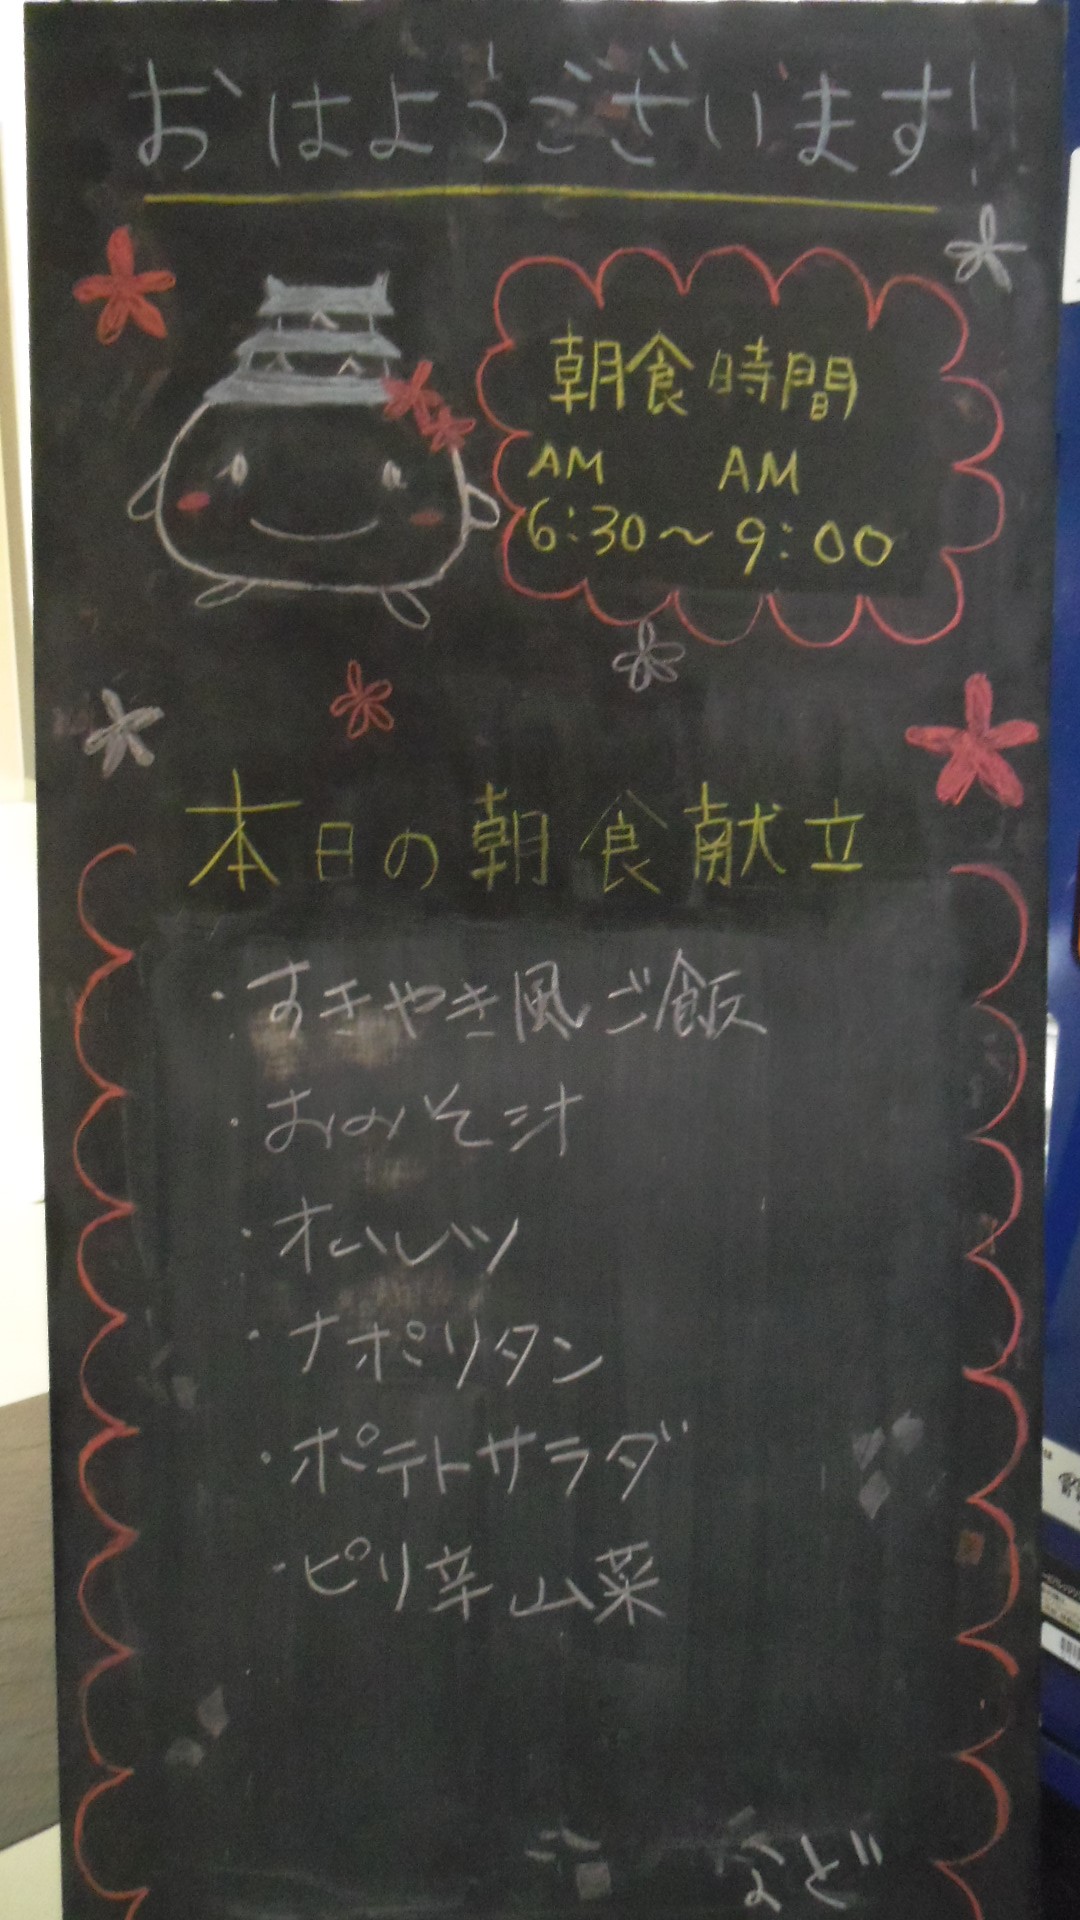 おはようございます!!
朝食時間
AM AM
6:30～9:00
本日の朝食献立
・すきやき風ご飯
・おみそ汁
・オムレツ
・ナポリタン
・ポテトサラダ
・ピリ辛山菜
など